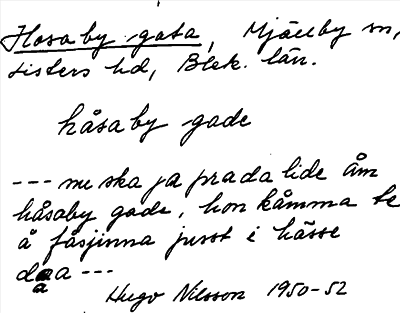 Hosaby gata, Mjällby sn,
Listers hd, Blek. län.
håsaby gade
--- nu ska ja prada lide åm
håsaby gade, hon kåmma te
å fåsjinna jusst i hässe
daa ---
Hugo Nilsson 1950-52